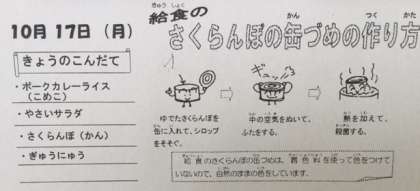 10月17日（月）
きょうのこんだて
・ポークカレーライス
（こめこ）
・やさいサラダ
・さくらんぼ（かん）
・ぎゅうにゅう
給食の
きゅうしょく
さくらんぼの缶づめの作り方
かん つく かた
ゆでたさくらんぼを
缶に入れて、シロップ
をそそぐ。
ギュッ
中の空気をぬいて、
ふたをする。
熱を加えて、
殺菌する。
給食のさくらんぼの缶づめは、着色料を使って色をつけて
いないので、自然のままの色をしています。